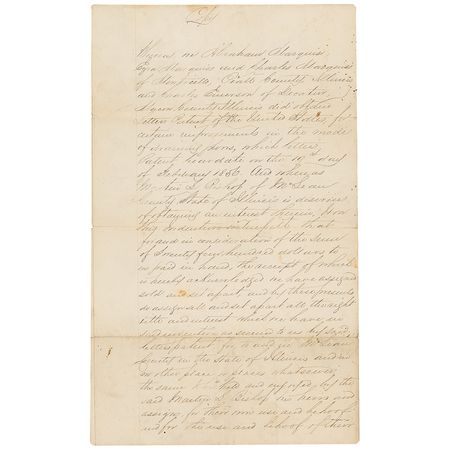 Copy
Whereas we Abraham Marquiss
Ezra Marquiss and Charles Marquiss
of Monticello, Piatt County Illinois
and Charles Emerson of Decatur
Macon County Illinois did obtain
Letters Patent of the United States, for
certain improvements in the mode
of draining, which letters
Patent bear date on the 19th day
of February 1856. And whereas
L Bishop of McLean
County State of Illinois is desirous
of obtaining an interest therein, Now
this indenture witnesseth that
for and in consideration of the sum
of hundred dollars to
us paid in hand, the receipt of which
is hereby acknowledged we have assigned
sold and set apart and by these presents
do assign sell and set apart all the right
title and interest which we have in
said invention as secured to us by said
letters patent, for in McLean
County in the State of Illinois and in
no other place or places whatsoever
the same to be held and enjoyed by the
said L Bishop his heirs and
assigns for their own use and behoof
and for the use and behoof of their